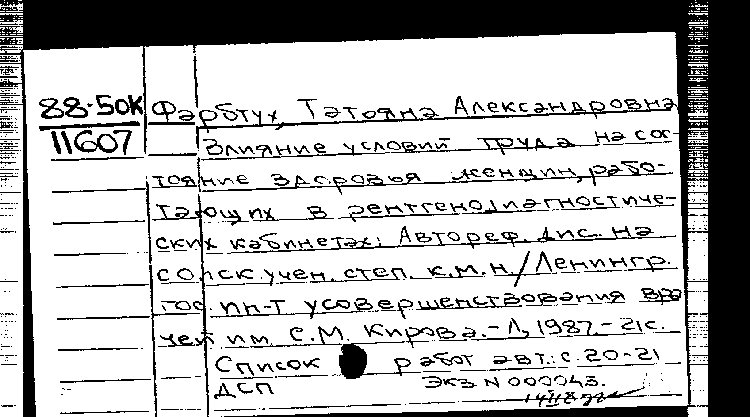 88-50К Фарбтух, Татьяна Александровна
11607 Влияние условий труда на сос-
тояние здоровья женщин, рабо-
тающих в рентгенодиагностиче-
ских кабинетах: Автореф. дис. на
соиск. учен. степ. к.м.н./Ленингр.
гос. ин-т усовершенствования вра
чей им. С.М. Кирова. - Л, 1987 - 21с.
Список работ авт.: с. 20-21
ДСП Экз N 000043.